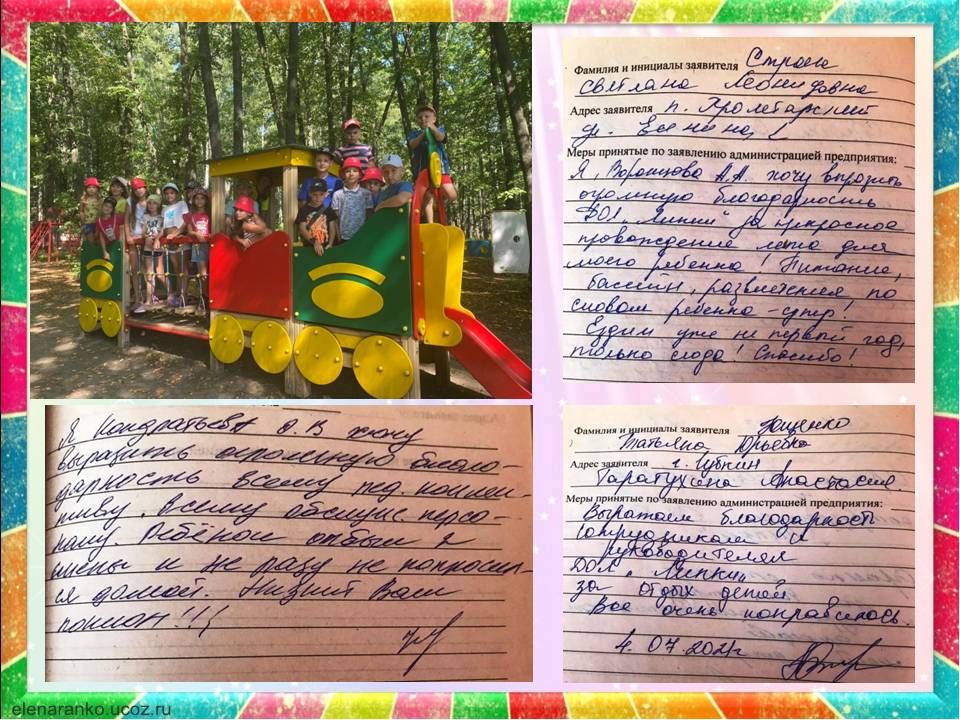 Фамилия и инициалы заявителя
Светлана Леонидовна
Адрес заявителя п. Пролетарский
Меры принятые по заявлению администрацией предприятия:
Я, Воронцова А.А. хочу выразить
огромную благодарность
ДОЛ "Липки" за прекрасное
провождение лета для
моего ребенка! Питание,
бассейн, развлечения, по
словам ребенка - супер!
Ездим уже не первый год,
только сюда! Спасибо!
Я Кондратьева О.В хочу
выразить огромную благо-
дарность всему пед. коллек-
тиву, всему обслуж. персо-
налу. Ребёнок отбыл 2
смены и не разу не попросил-
ся домой. Низкий Вам
поклон!!!
Фамилия и инициалы заявителя Ющенко
Татьяна Юрьевна
Адрес заявителя г. Губкин
Таратухина Анастасия.
Меры принятые по заявлению администрацией предприятия:
Выражаем благодарность
сотрудникам и
руководителям
ДОЛ "Липки"
за отдых детей
Все очень понравилось.
4.07.2021г
elenaranko.ucoz.ru